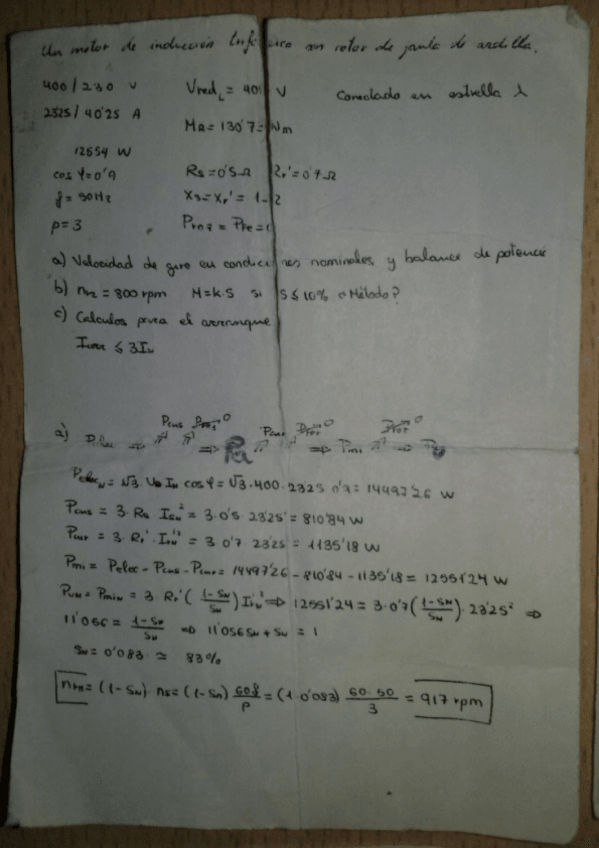 Un motor de inducción trifásico con rotor de jaula de ardilla.
400/230 V Vred L = 400 V Conectado en estrella ⅄
23'25/40'25 A
MR = 130'7 Nm
12554 W
cos φ = 0'9 Rs = 0'5 Ω Rr' = 0'7 Ω
f = 50 Hz Xs = Xr' = 1 Ω
p = 3 = PFe =
a) Velocidad de giro en condiciones nominales y balance de potencia
b) nr2 = 800 rpm M = k·S si S ≤ 10% ¿Método?
c) Calculos para el arranque
Iarr ≤ 3IN
a) Pelec → Pcus 0 ⇒ Pcur 0 ⇒ Pmi 0 →
PelecN = √3 · UN IN cos φ = √3 · 400 · 23'25 0'9 = 14497'26 W
Pcus = 3 · Rs · IsN² = 3 · 0'5 · 23'25² = 810'84 W
Pcur = 3 · Rr' · IrN'² = 3 · 0'7 · 23'25² = 1135'18 W
Pmi = Pelec - Pcus - Pcur = 14497'26 - 810'84 - 1135'18 = 12551'24 W
PUN = PmiN = 3 · Rr' (1-SN/SN) IrN'² ⇒ 12551'24 = 3 · 0'7 (1-SN/SN) · 23'25² ⇒
11'056 = 1-SN/SN ⇒ 11'056 SN + SN = 1
SN = 0'083 ≃ 8'3%
nrN = (1-SN) · ns = (1-SN) 60f/p = (1-0'083) 60·50/3 = 917 rpm